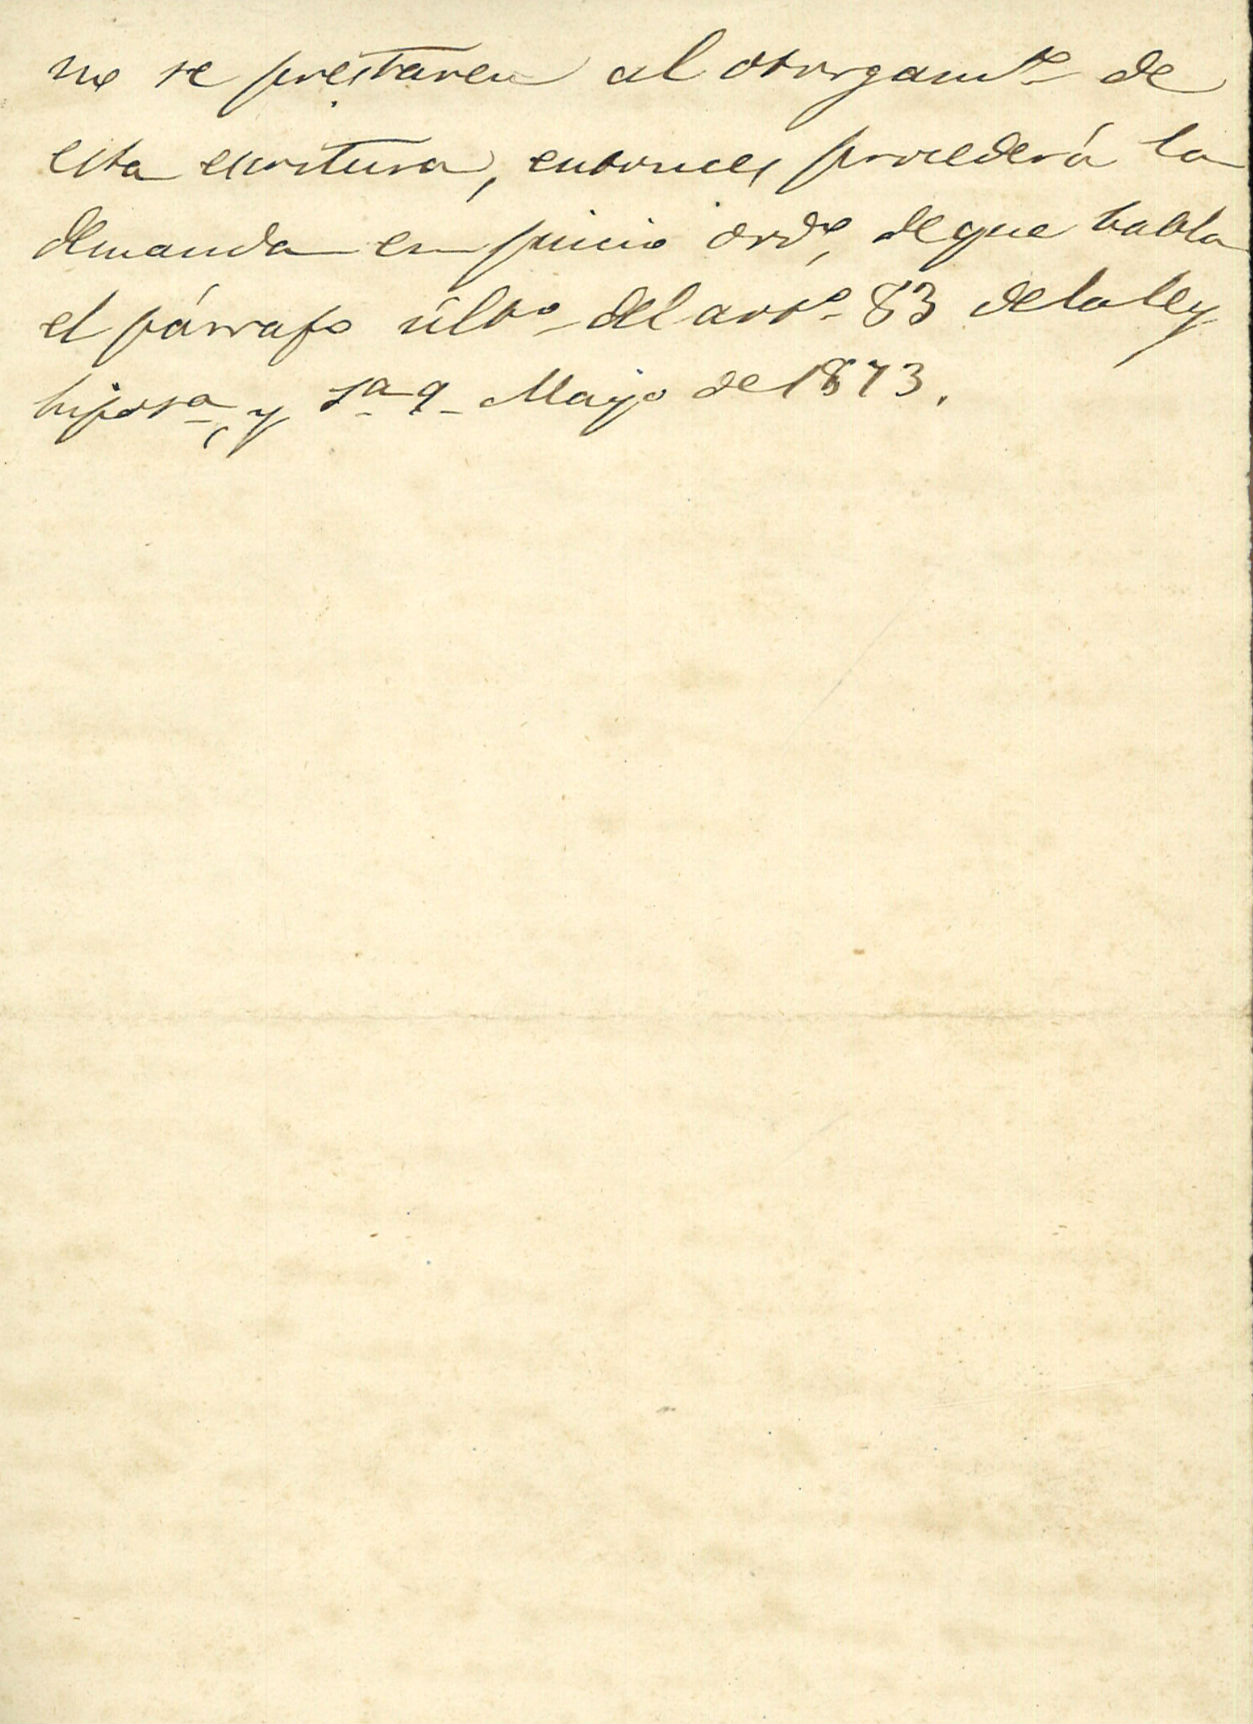 no se prestaren al otorgamto de
esta escritura, entonces procederá la
demanda en juicio ordo, de que habla
el párrafo últo del arto 83 de la ley
hipota, y sa 9 Mayo de 1873.